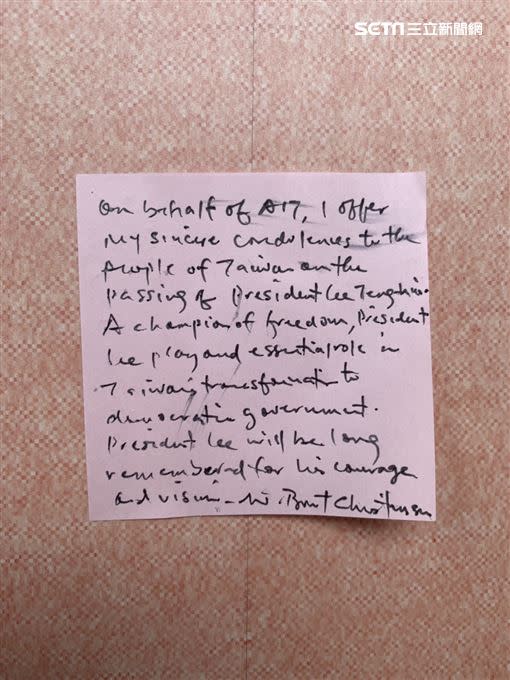 SETN三立新聞網
On behalf of AIT, I offer
my sincere condolences to the
people of Taiwan on the
passing of President Lee Teng-hui.
A champion of freedom, President
Lee play and essential role in
Taiwan's transformation to
democratic government.
President Lee will be long
remembered for his courage
and vision Brent Christensen